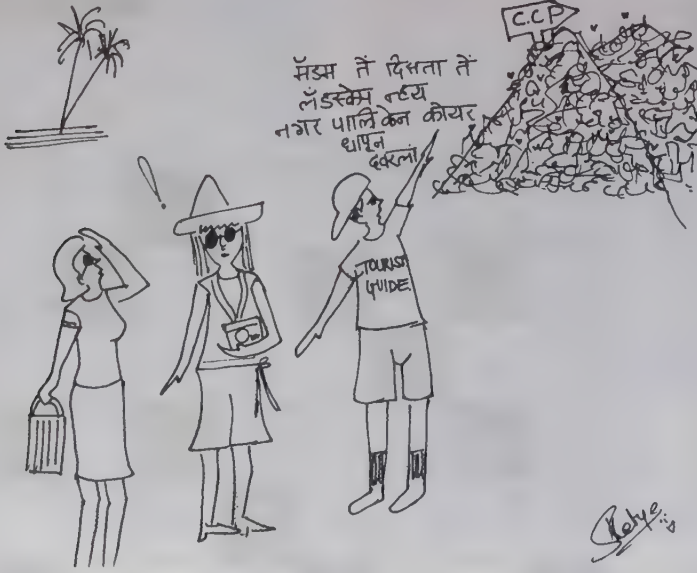 C.C.P
मॅडम तें दिसता तें
लँडस्केप न्हय
नगर पालिकेन कोयर
धांपून
दवरला
TOURIST
GUIDE